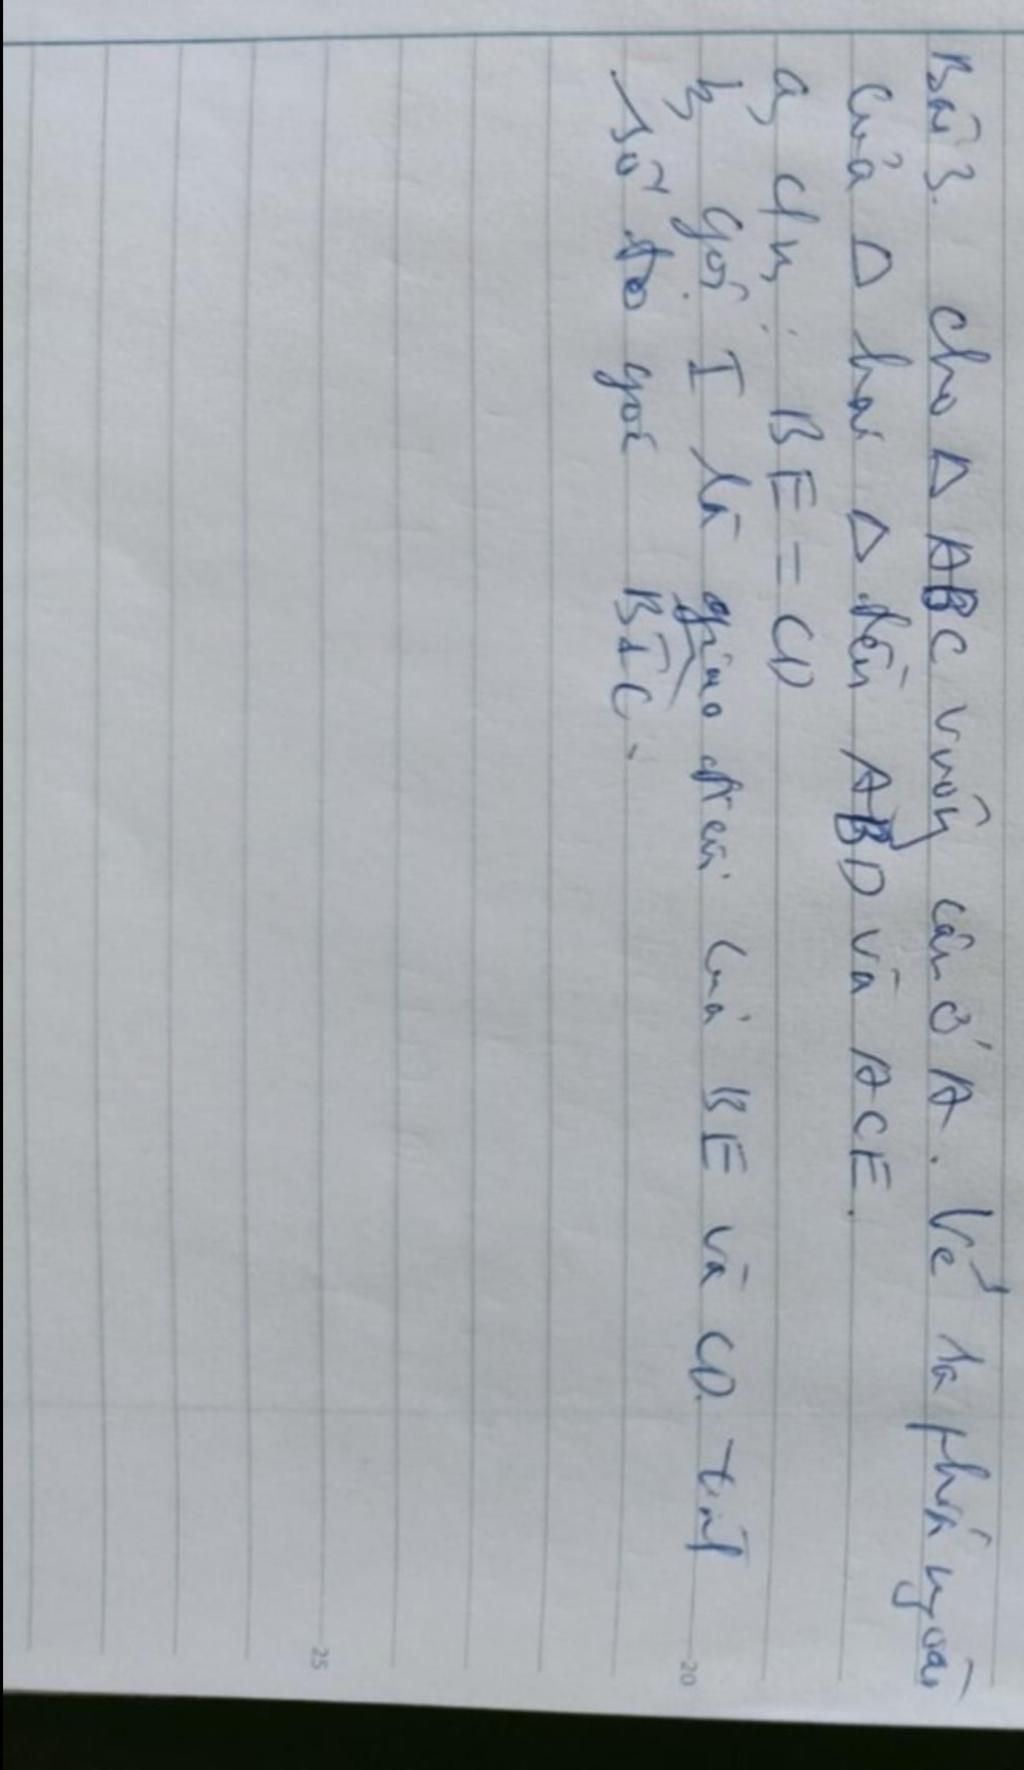 Bài 3. Cho Δ ABC vuông cân ở A. Vẽ ra phía ngoài
của Δ hai Δ đều ABD và ACE.
a, C/m: BE = CD
b, gọi I là giao điểm của BE và CD. tính
số đo góc BIC.
20
25